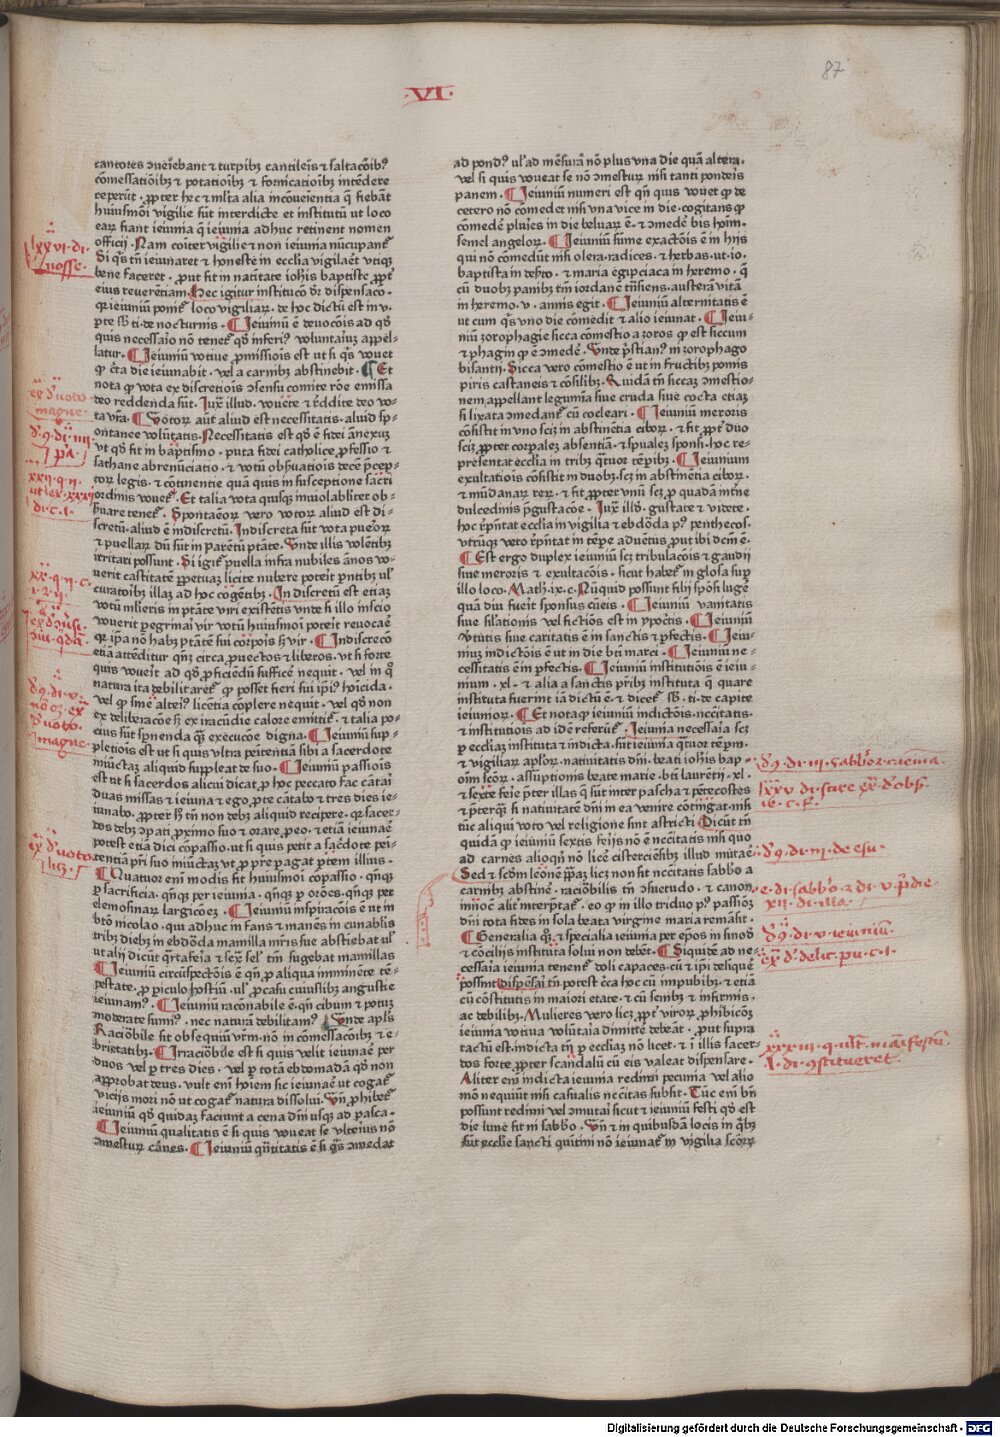 87
·VI·
cantores ↄueīebant ⁊ turpibꝫ cantilen̄is ⁊ saltacōibꝰ
cōmessatiōibꝫ ⁊ potatiōibꝫ ⁊ fornicatioibꝫ intēdere
ceperūt · ꝓpter hec ⁊ mlta alia incōueīentia q̄ fiebāt
huiusmōi vigilie sūt interdicte et institutū ut loco
earꝝ fiant ieiunia q̄ ieiunia adhuc retinent nomen
officij · Nam cōiter vigilie ⁊ non ieiunia nūcupant᷑
Si qͥs tn̄ ieiunaret ⁊ honeste in ecclia vigilaēt vtiqꝫ
bene faceret · ꝓut fit in natītate iohīs baptiste ꝓpt᷑
eius reuerētiam · Hec igitur institucō dr̄ dispensacō ·
qꝛ ieiuniū ponit᷑ loco vigiliarꝝ · de hoc dictū est in v ·
ꝑte sb̄ ti · de nocturnis · Ieiuniū ē deuocōis ad qd̓
quis necessaīo nō tenet᷑ qd̓ inferiꝰ voluntaīuꝫ appel-
latur · Ieiuniū votiue ꝓmissiōis est ut si qͥs vouet
ꝙ cͣta die ieiunabit · vel a carnibꝫ abstinebit · Et
nota ꝙ vota ex discretiōis ↄsensu comite rōe emissa
deo reddenda sūt · Iux̄ illud · vouēte ⁊ r̄ddite deo vo-
ta vr̄a · Votorꝝ aūt aliud est necessitatis · aliud sp-
ontanee volūtatis · Necessitatis est qd̓ ē fidei ānexuꝫ
vt qd̓ fit in baptismo · puta fidei catholice ꝓfessio ⁊
sathane abrenūciatio · ⁊ votū obẜuatiois decē ꝑcep-
torꝝ legis · ⁊ cōtinentie quā quis in susceptione sac̄ri
ordinis vouet᷑ · Et talia vota quisqꝫ inuiolabliter ob-
ẜuare tenet᷑ · Spontaēorꝝ vero votorꝝ aliud est di-
scretū · aliud ē indiscretū · Indiscreta sūt vota puerorꝝ
⁊ puellarꝝ dū sūt in parētū ptāte · Vnde illis volētibꝫ
irritati possunt · Si igit᷑ puella infra nubiles ānos vo-
uerit castitatē ꝑpetuaꝫ licite nubere potēit ꝑntibꝫ ul̓
curatoibꝫ illaꝫ ad hoc cogētibꝫ · Indiscretū est etiaꝫ
votū mlieris in ptāte viri existētis vnde si illo inscio
vouerit pegrinai᷑ viri votū huiusmoi potēit reuocāe
qꝛ ip̄a nō habꝫ ptātē sui corpois sꝫ vir · Indiscrecō
etiā attēditur qn̄ꝫ circa ꝓuectos ⁊ libetos · vt si forte
quis vouēit ad qd̓ ꝓficiēdū sufficē nequit · vel in qͦ
natura ita debilitaret᷑ ꝙ posset fieri sui ip̄iꝰ hōicida ·
vel ꝙ sine alteīꝰ licētia cōplere nequit · vel qd̓ non
ex deliberacōe sꝫ ex iracūdie calore emittit᷑ · ⁊ talia po-
cius sūt spn̄enda qͣꝫ execucōe digna · Ieiuniū sup-
pletiois est ut si quis vltra peītentiā sibi a sacerdote
iniūctaꝫ aliquid suppleat de suo · Ieiuniū passiōis
est ut si sacerdos alicui dicat ꝓ hoc peccato fac cātai᷑
duas missas ⁊ ieiuna ⁊ ego ꝓ te cātabo ⁊ tres dies ie-
iunabo · ꝓpter hꝫ tn̄ non debꝫ aliquid recipere · qꝛ sacer-
dos debꝫ ↄpati ꝓximo suo ⁊ orare ꝓ eo · ⁊ etiā ieiunāē
potest etiā dici cōpassio · ut si quis petit a sac̄dote pei-
tentiā pr̄i suo iniūctaꝫ vt ꝓ pr̄e pagat ꝑtem illius ·
Quatuor eni modis fit huiusmoi copassio · qn̄qꝫ
ꝑ sacrificia · qn̄qꝫ per ieiunia · qn̄qꝫ ꝑ orōes · qn̄qꝫ per
elemosinarꝝ largicōeꝫ · Ieiuniū inspiracōis ē ut in
btō nicolao · qui adhuc infans ⁊ manēs in cunablis
tribꝫ diebꝫ in ebdōda mamilla mr̄is sue abstiebat ul̓
ut alij dicūt qͣrtafeīa ⁊ sex̄ sel̓ tm̄ sugebat mamillas
Ieiuniū circūspectōis ē qn̄ ꝓ aliqua imminēte tē-
pestate · ꝓ piculo hostiū · ul̓ ꝓ casu cuiuslibꝫ angustie
ieiunamꝰ · Ieiuniū raconabile ē · qn̄ cibum ⁊ potuꝫ
moderate sumimꝰ · nec naturā debilitamꝰ · Vnde apl̓s
Raciōbile sit obsequiū vr̄m · nō in comessacōibꝫ ⁊ e-
brietatibꝫ · Irraciōbile est si quis velit ieiunāē per
duos vel ꝑ tres dies · vel ꝑ tota ebdomadā qd̓ non
approbat deus · vult eni hoiem sic ieiunāe ut cogat᷑
vicijs mori nō ut cogat᷑ natura dissolui · Vn̄ ꝓhibet᷑
ieiuniū qd̓ quidaꝫ faciunt a cena dn̄i usqꝫ ad pasca ·
Ieiuniū qualitatis ē si quis voueat se vlterius nō
ↄmestuꝝ carnes · Ieiuniū qn̄titatis ē si qͥs ↄmedat
ad pondꝰ ul̓ ad mēsurā nō plus vna die quā altera ·
vel si quis voueat se nō ↄmesturꝝ nisi tanti ponderis
panem · Ieiuniū numeri est qn̄ quis vouet ꝙ de
cetero nō cōmedet nisi vna vice in die · cogitans ꝙ
cōmedē pluies in die beluarꝝ ē · ⁊ ↄmedē bis hoīm ·
semel angelorꝝ · Ieiuniū sūme exactōis ē in hijs
qui nō comedūt nisi olera · radices · ⁊ herbas · ut · io ·
baptista in deẜto · ⁊ maria egipciaca in heremo · q̄
cū duobꝫ panibꝫ tm̄ iordanē tn̄siens · austerā vitā
in heremo · v · annis egit · Ieiuniū alternitatis ē
ut cum qͥs vno die comedit ⁊ alio ieiunat · Ieiu-
niū zorophagie sicca comestio a zoros ꝙ est siccum
⁊ phagin ꝙ ē ↄmedē · Vnde pͥstianꝰ in zorophago
bisantij · Sicca vero comestio ē ut in fructibꝫ pomis
piris castaneis ⁊ cōsilibꝫ · Quidā tn̄ siccaꝫ ↄmestio-
nem appellant legumīa siue cruda siue cocta etiaꝫ
si lixata ↄmedant᷑ cū cocleari · Ieiuniū meroris
cōsistit in vno sciꝫ in abstinētia ciborꝝ · ⁊ fit ꝓpt᷑ duo
sciꝫ ꝓpter corpaleꝫ absentiā · ⁊ sp̄ualeꝫ sponsi · hoc re-
presentat ecclia in tribꝫ qͣtuor tēpibꝫ · Ieiunium
exultatiois cōsistit in duobꝫ · scꝫ in abstinētia ciborꝝ ·
⁊ mūdanarꝝ rerꝝ · ⁊ fit ꝓpter vnū scꝫ ꝓ quadā mēne
dulcedinis pͤgustacōe · Iux̄ illd̓ · gustate ⁊ videte ·
hoc r̄pn̄tat ecclia in vigilia ⁊ ebdōda pꝰ penthecos᷑
vtrūqꝫ vero r̄pn̄tat in tēpe aduētus · ꝓut ibi dcm̄ ē ·
Est ergo duplex ieiuniū scꝫ tribulacōis ⁊ gaudij
siue meroris ⁊ exultacōis · sicut habet᷑ in glosa suꝑ
illo loco · Math · ix · c · Nūquid possunt filij spōsi lugē
quā diu fueit sponsus cū eis · Ieiuniū vanitatis
siue silationis vel fictiōis est in ypoc̄tis · Ieiuniū
v̓tutis siue caritatis ē in sanctis ⁊ ꝑfectis · Ieiu-
niuꝫ indictōis ē ut in die btī marci · Ieiuniū ne-
cessitatis ē in ꝑfectis · Ieiuniū institutiōis ē ieiu-
nium · xl · ⁊ alia a sanctis pr̄ibꝫ instituta q̄ quare
instituta fuerint iā dictū ē · ⁊ dicet᷑ · sb̄ · ti · de capite
ieiuniorꝝ · Et nota ꝙ ieiuniū indictōis · nccītatis ·
⁊ institutiōis ad idē referūt᷑ · Ieiunia necessaīa scꝫ
ꝑ eccliaꝫ instituta ⁊ indicta · sūt ieiunia qͣtuor tēpm̄ ·
⁊ vigiliarꝝ apl̓orꝝ · natiuitatis dn̄i · beati iohīs bap-
oīm scōrꝝ · assuptionis beate marie · btī laurētij · xl ·
⁊ sexte feīe pͣter illas q̄ sūt inter pascha ⁊ pētecostes
⁊ pͣterqͣꝫ si natiuitatē dn̄i in ea venire cōtingat · nisi
tūc aliqui voto vel religione sint astricti · Dicūt tn̄
quidā ꝙ ieiuniū sextis feīis nō ē nccītatis nisi quo
ad carnes alioqn̄ nō licē cisterciēsibꝫ illud mutāe
Sed ⁊ scdm leōnē ppaꝫ licꝫ non sit nccītatis sabbo a
carnibꝫ abstinē · raciōbilis tn̄ ↄsuetudo · ⁊ canon ·
innocē alit᷑ interpt̄at᷑ · eo ꝙ in illo triduo pꝰ passiōꝫ
dn̄i tota fides in sola beata virgine maria remāsit ·
Generalia qͣꝫ ⁊ specialia ieiunia per epos in sinod̓
⁊ cōcilijs instituta solui non debēt · Siquidē ad ne-
cessaīa ieiunia tenent᷑ doli capaces · cū ⁊ ip̄i delīquē
possint · dispensai᷑ tn̄ potest cͨa hoc cū impubibꝫ · ⁊ etiā
cū cōstitutis in maiori etate · ⁊ cū senibꝫ ⁊ infirmis ·
ac debilibꝫ · Mulieres vero licꝫ ꝓpt᷑ virorꝝ ꝓhibicōꝫ
ieiunia votiua volūtaia dimittē debeāt · ꝓut supra
tactū est · indicta tn̄ ꝑ eccliaꝫ nō licet · ⁊ i illis sacer-
dos forte ꝓpter scandalū cū eis valeat dispensare ·
Aliter eni indicta ieiunia redimi pecunia vel alio
mō nequiūt nisi casualis nccītas subsit · Tūc eni bn̄
possunt redimi vel ↄmutai sicut ⁊ ieiuniū festi qd̓ est
die lune fit in sabbo · Vn̄ ⁊ in quibusdā locis in qͥbꝫ
sūt ecclie sancti quītini nō ieiunat᷑ in vigilia scōrꝝ
lxxvi · di ·
nosse ·
ex d̓ uoto
magne ·
xx · q · ij · c ·
1 · 2 · ij ·
ex d̓ uoto
licꝫ ·
d̓ 9 · di · iij · sabbo ·
d̓ 9 · di · iij · de esu ·
d̓ 9 · di · v · ieiuniū ·
ex d̓ delic · pu · c · 1 ·
Digitalisierung gefördert durch die Deutsche Forschungsgemeinschaft - DFG